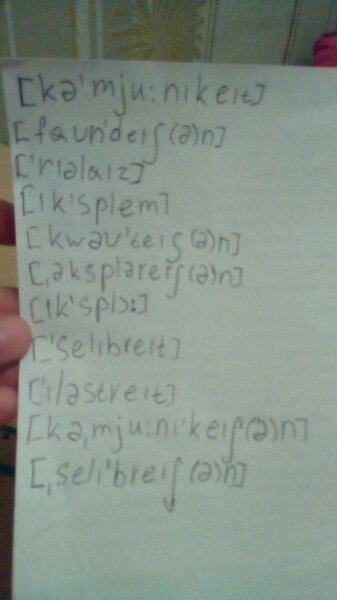 [kə'mju:nıkeıt]
[faun'deıʃ(ə)n]
['rıəlaız]
[ık'splem]
[kwəʊ'teıʃ(ə)n]
[ˌəkspləreıʃ(ə)n]
[ık'splɔ:]
['selıbreıt]
['ıləstreıt]
[kəˌmju:nı'keıʃ(ə)n]
[ˌselı'breıʃ(ə)n]